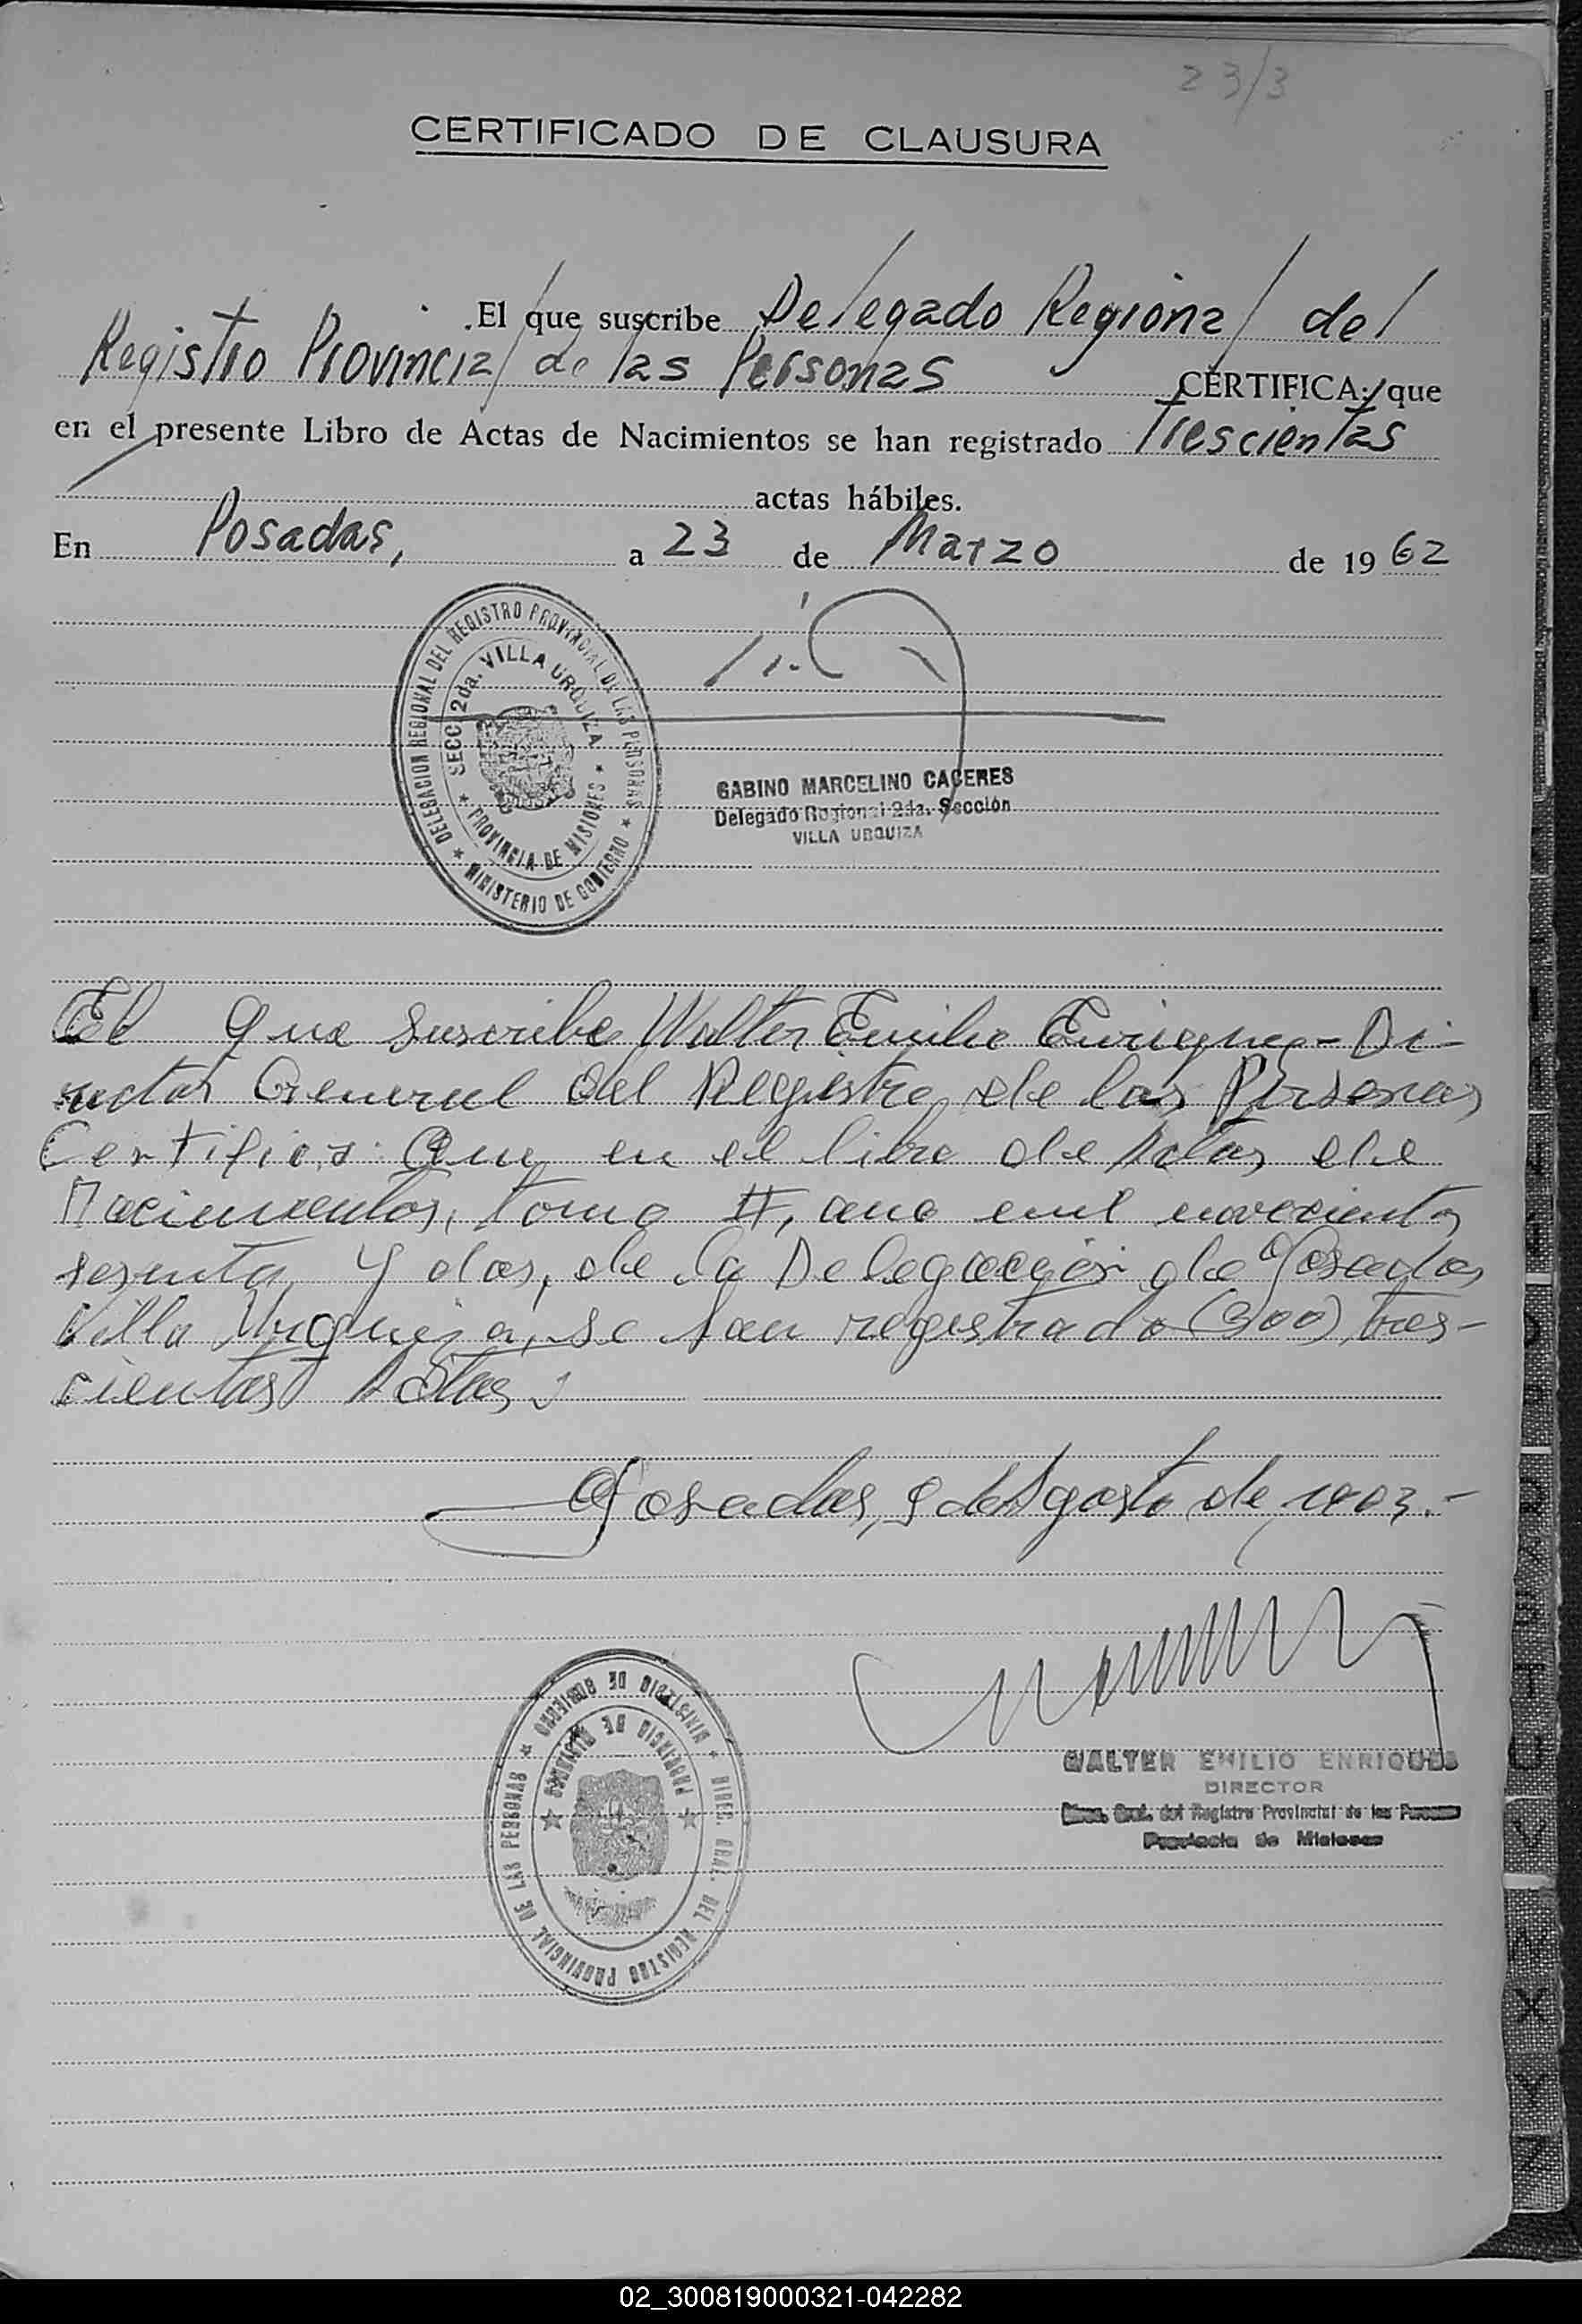 23/3
CERTIFICADO DE CLAUSURA
El que suscribe Delegado Regional del
Registro Provincial de las Personas CERTIFICA: que
en el presente Libro de Actas de Nacimientos se han registrado Trescientas
actas hábiles.
En Posadas, a 23 de Marzo de 1962
DELEGACION REGIONAL DEL REGISTRO PROVINCIAL DE LAS PERSONAS
★ MINISTERIO DE GOBIERNO ★
SECC. 2da. VILLA URQUIZA
★ PROVINCIA DE MISIONES ★
GABINO MARCELINO CACERES
Delegado Regional 2da. Sección
VILLA URQUIZA
El que suscribe Walter Emilio Enriquez - Di-
rector General del Registro de las Personas
Certifica: Que en el libro de Actas de
Nacimientos, tomo II, año mil novecientos
sesenta y dos, de la Delegación de Posadas
Villa Urquiza, se han registrado (300) tres-
cientas Actas
Posadas, 9 de Agosto de 1963.-
MINISTERIO DE GOBIERNO ★ DIREC. GRAL. DEL REGISTRO PROVINCIAL DE LAS PERSONAS ★
★ PROVINCIA DE MISIONES ★
WALTER EMILIO ENRIQUEZ
DIRECTOR
Direc. Gral. del Registro Provincial de las Personas
Provincia de Misiones
02_300819000321-042282